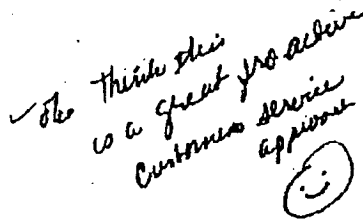 Think this
is a great pro active
customer service